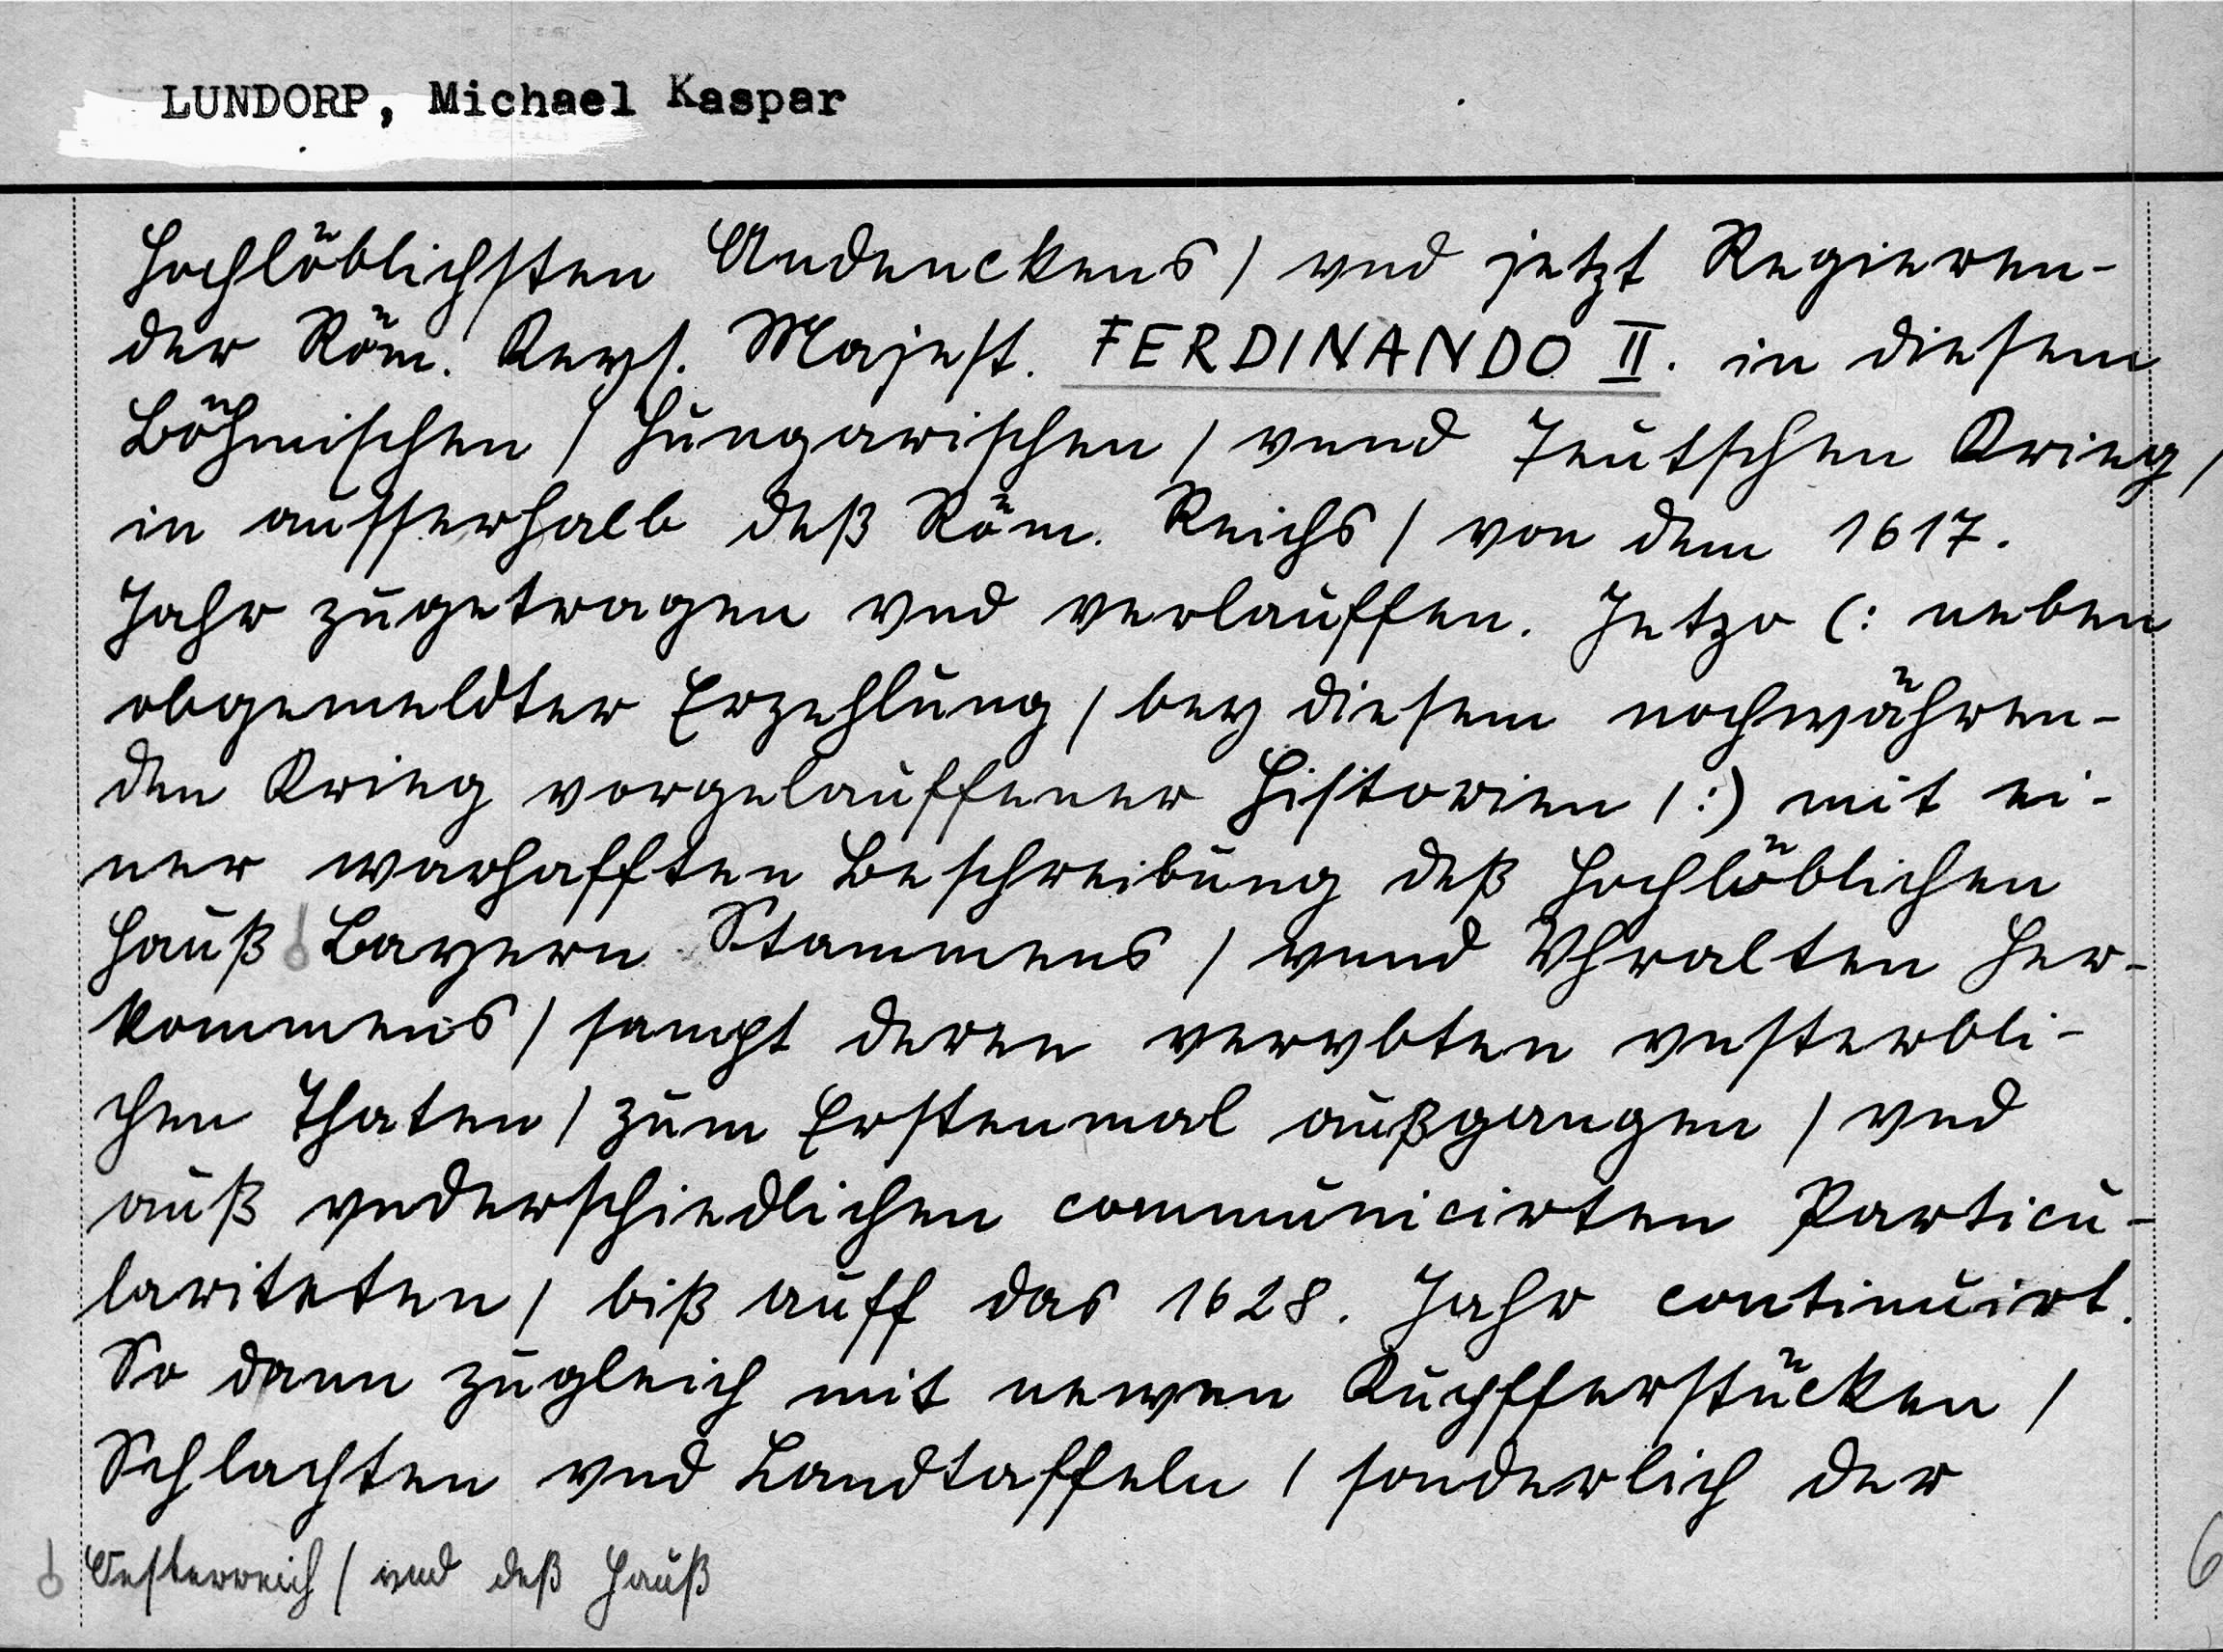 LUNDORP, Michael Kaspar
Hochlöblichsten Andenckens / vnd jetzt Regieren-
der Röm. Keys. Majest. FERDINANDO II. in diesem
Böhmischen / Hungarischen / vnnd Teutschen Krieg /
in ausserhalb deß Röm. Reichs / von dem 1617.
Jahr zugetragen vnd verlauffen. Jetzo (: neben
obgemeldter Erzehlung / bey diesem nochwähren-
den Krieg vorgelauffener Historien / :) mit ei-
ner warhafften Beschreibung deß Hochlöblichen
Hauß Bayern Stammens / vnnd Vhralten Her-
kommens / sampt deren vervbten vnsterbli-
chen Thaten / zum Erstenmal außgangen / vnd
auß vnderschiedlichen communicirten Particu-
lariteten / biß auff das 1628. Jahr continuirt.
So dann zugleich mit newen Kupfferstücken /
Schlachten vnd Landtaffeln / sonderlich der
Oesterreich / vnd deß Hauß
6